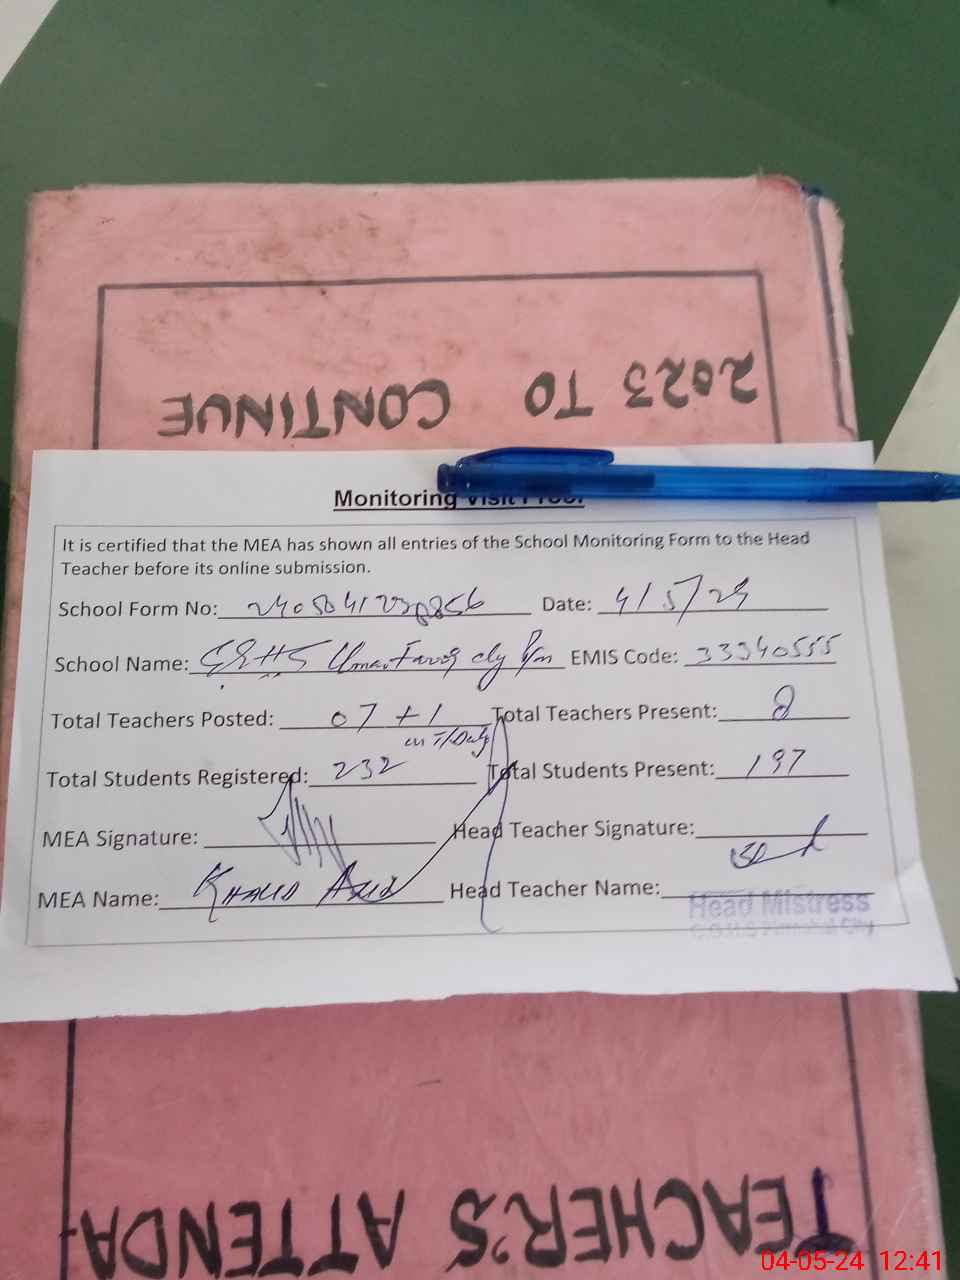 2023 TO CONTINUE
Monitoring Visit Proof
It is certified that the MEA has shown all entries of the School Monitoring Form to the Head
Teacher before its online submission.
School Form No: Date: 4/5/24
School Name: GGHS Umar Farooq EMIS Code: 33340555
Total Teachers Posted: 07 + 1 Total Teachers Present: 8
on T/Duty
Total Students Registered: 232 Total Students Present: 197
MEA Signature: Head Teacher Signature:
MEA Name: KHALID AZIZ Head Teacher Name:
Head Mistress
City
TEACHER'S ATTENDA
04-05-24 12:41